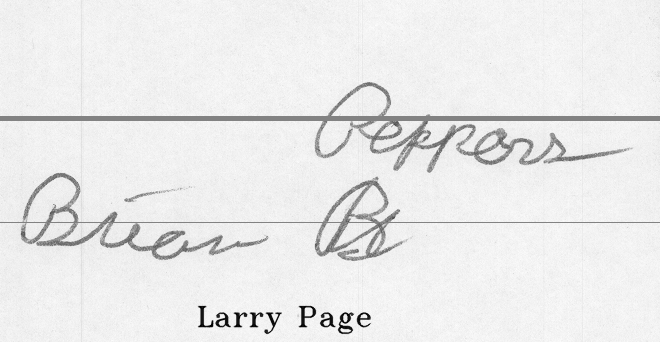 Peppers
Brian
Larry Page